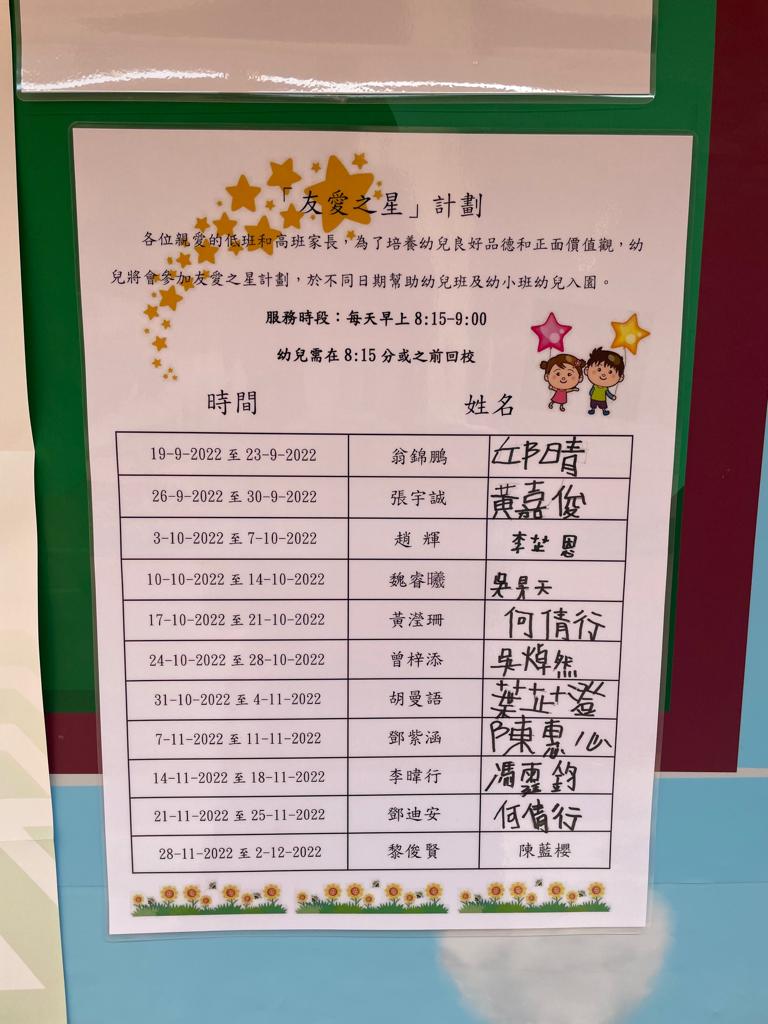 「友愛之星」計劃
各位親愛的低班和高班家長，為了培養幼兒良好品德和正面價值觀，幼
兒將會參加友愛之星計劃，於不同日期幫助幼兒班及幼小班幼兒入園。
服務時段：每天早上 8:15-9:00
幼兒需在 8:15 分或之前回校
時間 姓名
19-9-2022 至 23-9-2022 翁錦鵬 邱晴
26-9-2022 至 30-9-2022 張宇誠 黃嘉俊
3-10-2022 至 7-10-2022 趙 輝 李芷恩
10-10-2022 至 14-10-2022 魏睿曦 吳昊天
17-10-2022 至 21-10-2022 黃瀅珊 何倩行
24-10-2022 至 28-10-2022 曾梓添 吳焯然
31-10-2022 至 4-11-2022 胡曼語 葉芷澄
7-11-2022 至 11-11-2022 鄧紫涵 陳惠心
14-11-2022 至 18-11-2022 李暐行 馮靈鈞
21-11-2022 至 25-11-2022 鄧迪安 何倩行
28-11-2022 至 2-12-2022 黎俊賢 陳藍櫻